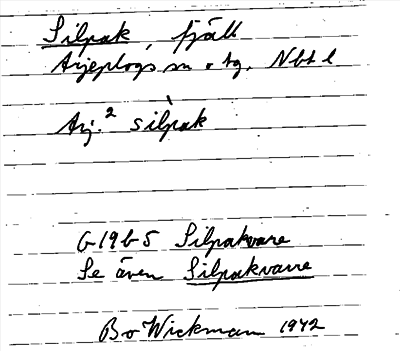 Silpak, fjäll
Arjeplogs sn o tg. Nbt l
Arj.² sìlpak
G 19 b 5 Silpakvare
Se även Silpakvarre
Bo Wickman 1942